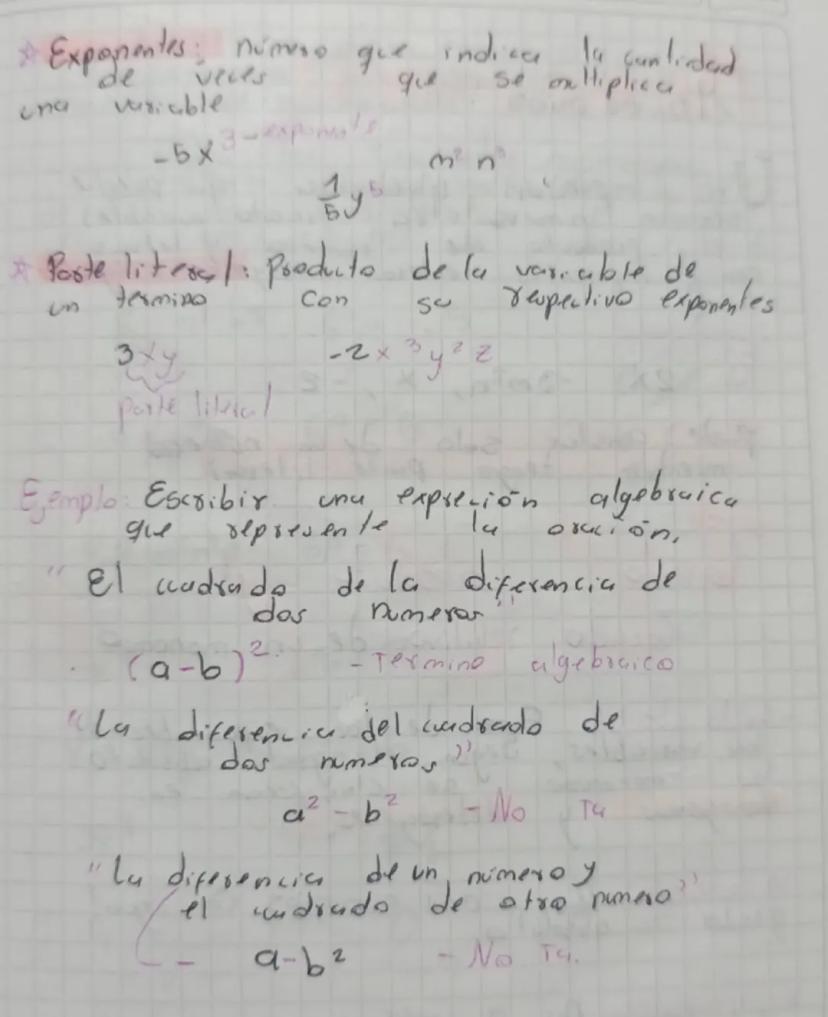 * Exponentes: número que indica la cantidad
de veces que se multiplica
una variable
-5x³ - exponente
m² n³
1/5 y⁵
* Parte literal: Producto de la variable de
un termino con su respectivo exponentes
3xy -2x³y²z
parte literal
Ejemplo: Escribir una expreción algebraica
que represente la oración,
"El cuadrado de la diferencia de
dos numeros"
(a-b)². - Termino algebraico
"La diferencia del cuadrado de
dos numeros"
a² - b² - No Ta
"La diferencia de un número y
el cuadrado de otro numero"
- a-b² - No Ta.